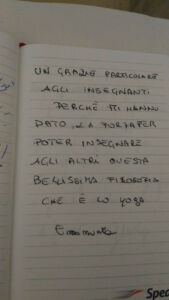 UN GRAZIE PARTICOLARE
AGLI INSEGNANTI
PERCHÉ MI HANNO
DATO LA FORZA PER
POTER INSEGNARE
AGLI ALTRI QUESTA
BELLISSIMA FILOSOFIA
CHE È LO YOGA
Emanuela
Spee